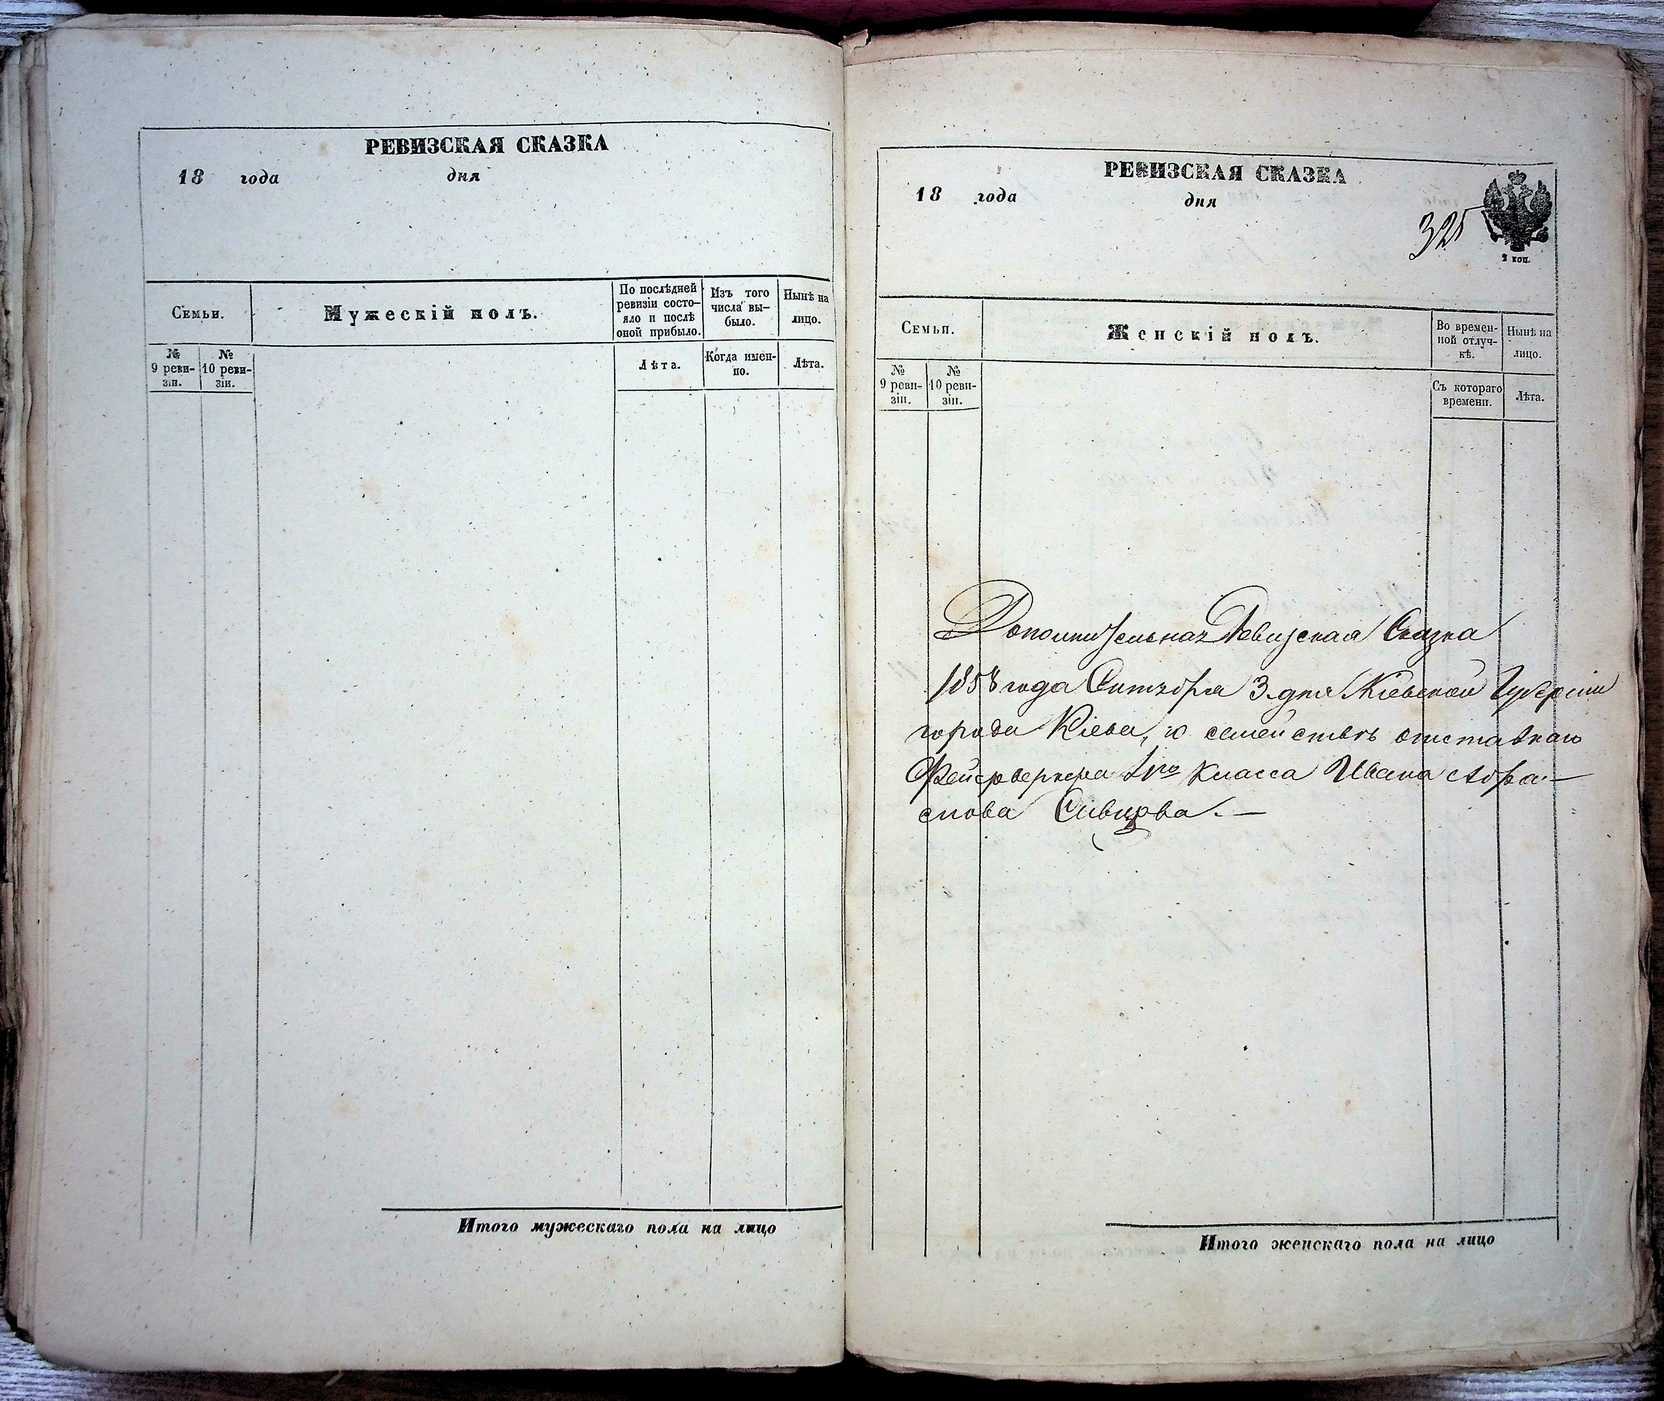 РЕВИЗСКАЯ СКАЗКА
18 года дня
Семьи.
Мужескій полъ.
По послѣдней ревизіи состо-
яло и послѣ
оной прибыло.
Изъ того
числа вы-
было.
Нынѣ на
лицо.
№
9 реви-
зіи.
№
10 реви-
зіи.
Лѣта.
Когда имен-
но.
Лѣта.
Итого мужескаго пола на лицо
РЕВИЗСКАЯ СКАЗКА
18 года дня
325
2 коп.
Семьи.
Женскій полъ.
Во времен-
ной отлуч-
кѣ.
Нынѣ на
лицо.
№
9 реви-
зіи.
№
10 реви-
зіи.
Съ котораго
времени.
Лѣта.
Дополнительная Ревизская Сказка
1858 года Сентября 3 дня Кіевской Губерніи
города Кіева, о семействѣ отставнаго
Фейерверкера 1го класса Ивана
Итого женскаго пола на лицо